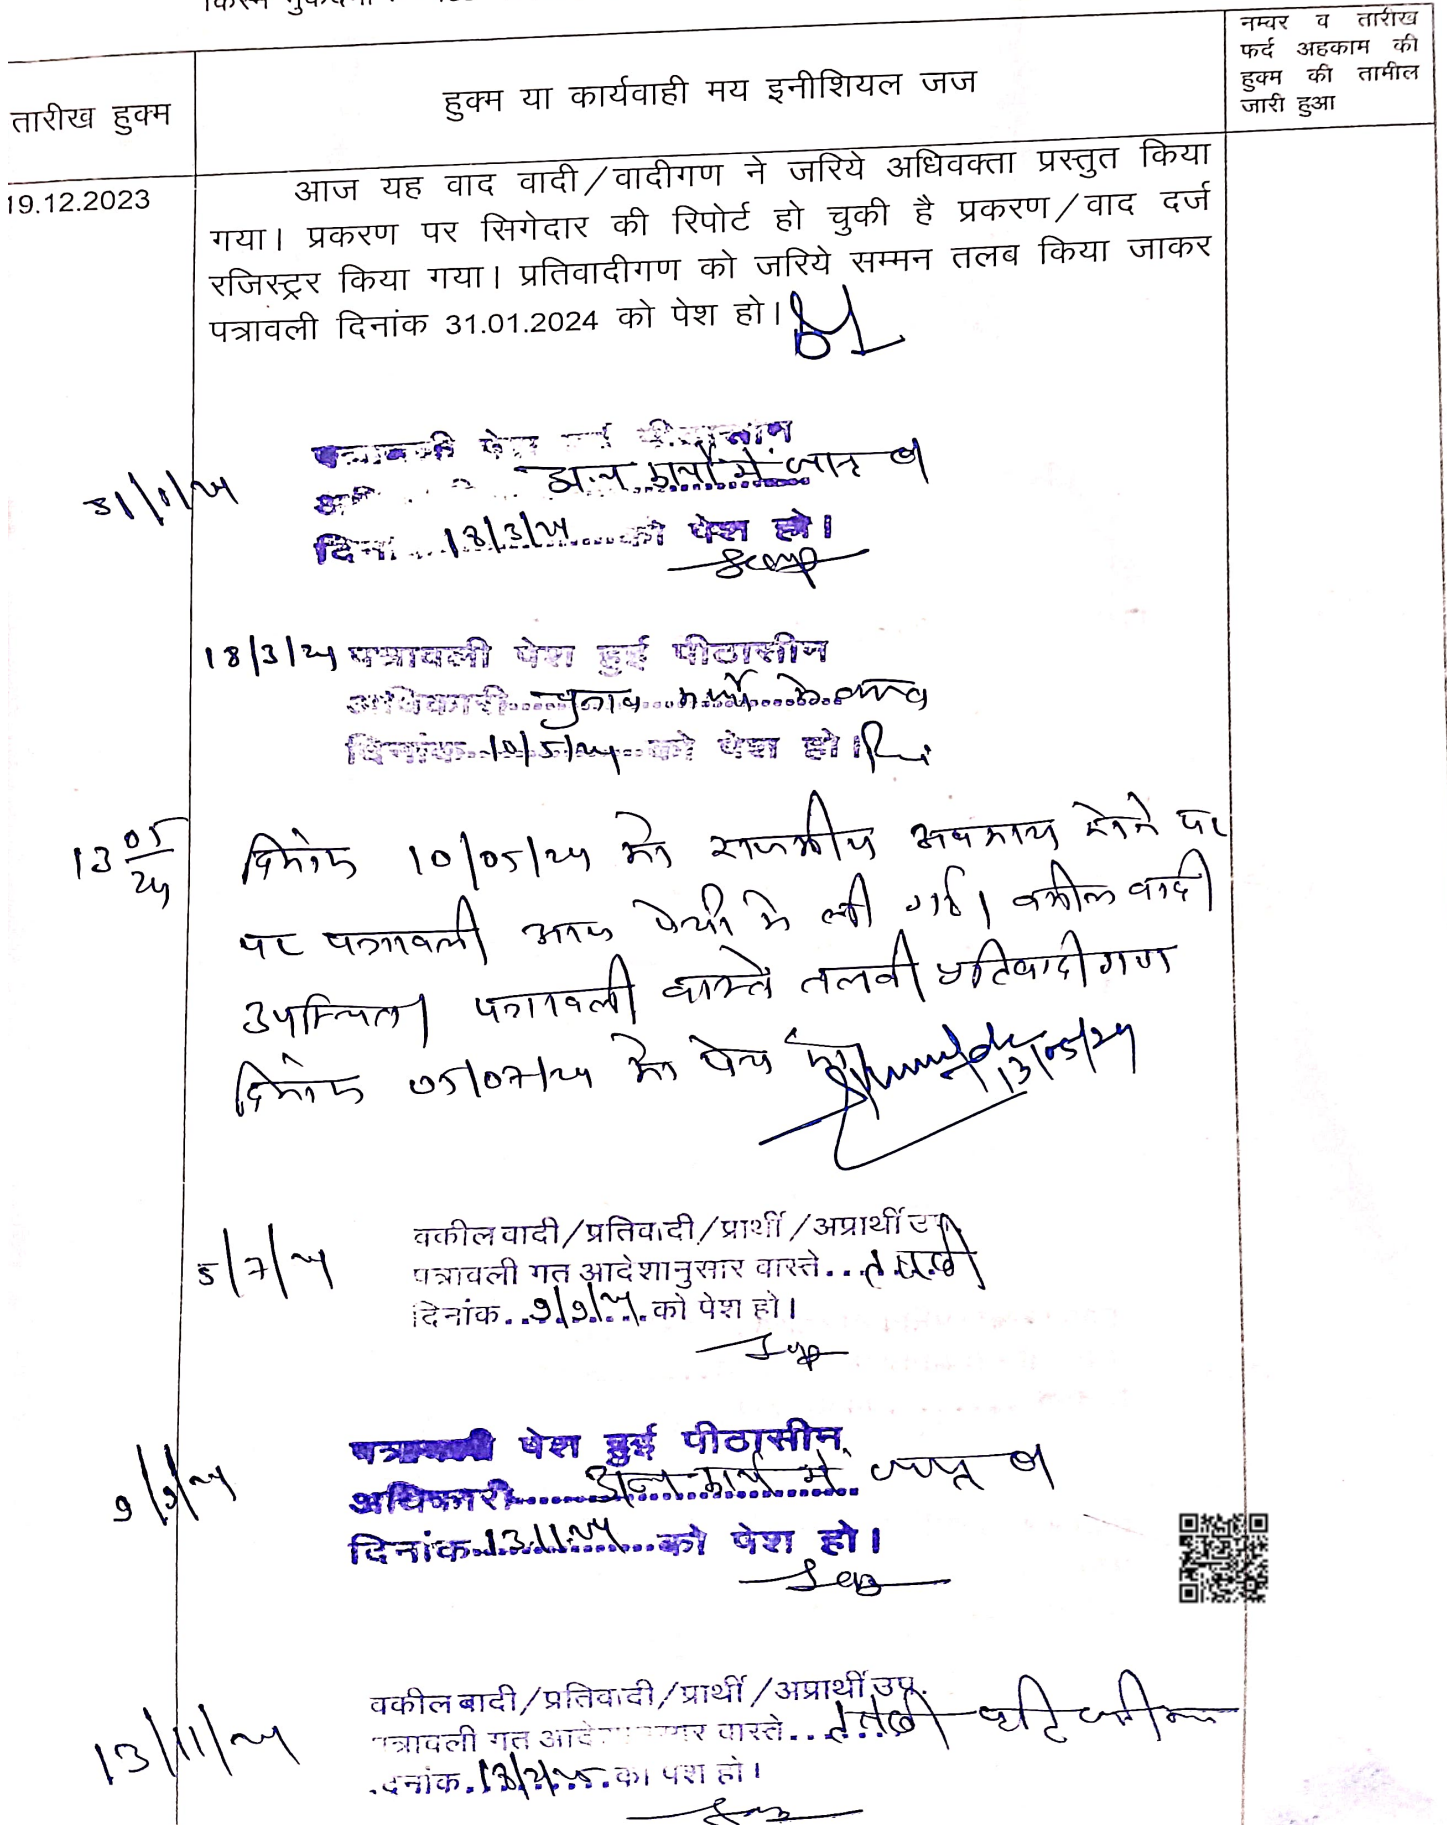 नम्बर व तारीख
फर्द अहकाम की
हुक्म की तामील
जारी हुआ
तारीख हुक्म
हुक्म या कार्यवाही मय इनीशियल जज
19.12.2023
आज यह वाद वादी/वादीगण ने जरिये अधिवक्ता प्रस्तुत किया
गया। प्रकरण पर सिगेदार की रिपोर्ट हो चुकी है प्रकरण/वाद दर्ज
रजिस्ट्रर किया गया। प्रतिवादीगण को जरिये सम्मन तलब किया जाकर
पत्रावली दिनांक 31.01.2024 को पेश हो।
31/1/24
पत्रावली पेश हुई पीठासीन
अन्य कार्यो में
18/3/24 को पेश हो।
18/3/24 पत्रावली पेश हुई पीठासीन
अधिकारी चुनाव कार्य में
दिनांक 10/5/24 को पेश हो।
13 05/24
दिनांक 10/05/24 को राजकीय अवकाश होने पर
पर पत्रावली आज पेशी मे ली गई। वकील वादी
उपस्थित। पत्रावली वास्ते तलबी प्रतिवादीगण
दिनांक 05/07/24 को पेश हो
13/05/24
5/7/24
वकील वादी/प्रतिवादी/प्रार्थी/अप्रार्थी उप.
पत्रावली गत आदेशानुसार वास्ते...तलबी
दिनांक..9/9/24.को पेश हो।
9/9/24
पत्रावली पेश हुई पीठासीन
अधिकारी अन्य कार्य में
दिनांक 13.11.24 को पेश हो।
13/11/24
वकील बादी/प्रतिवादी/प्रार्थी/अप्रार्थी उप.
पत्रावली गत वास्ते...तलबी
को पेश हो।